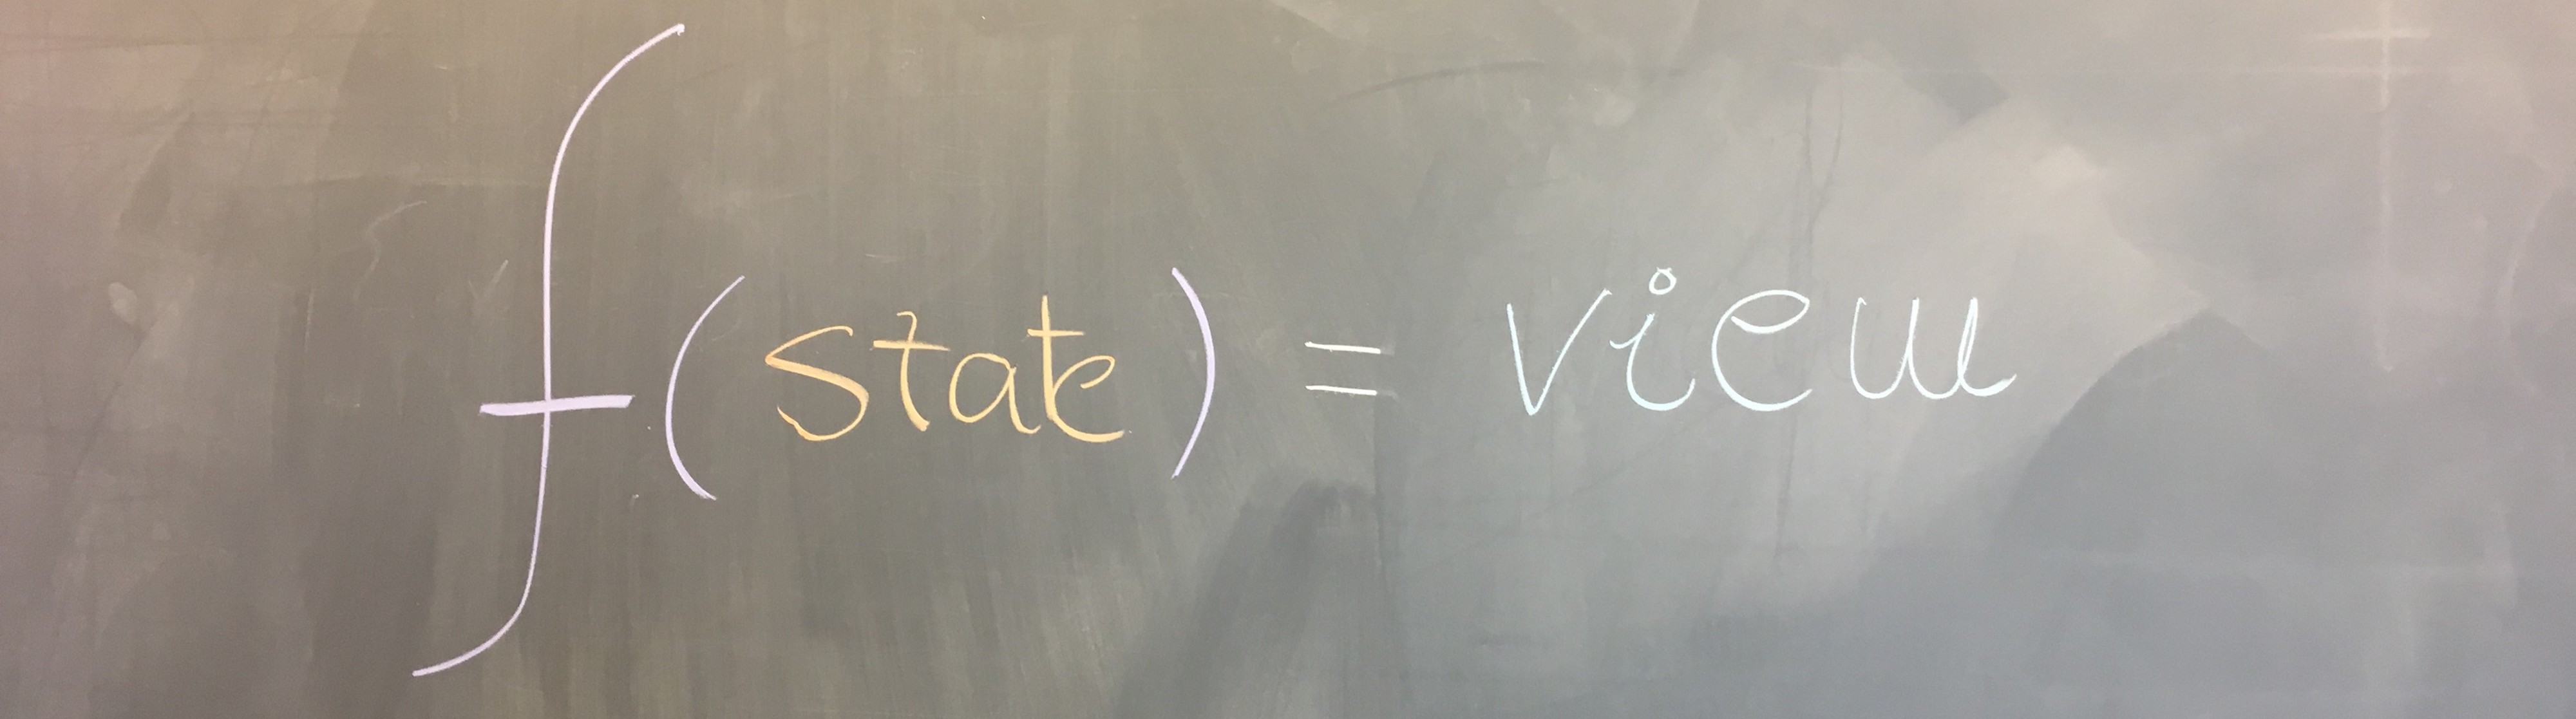 f(state) = view